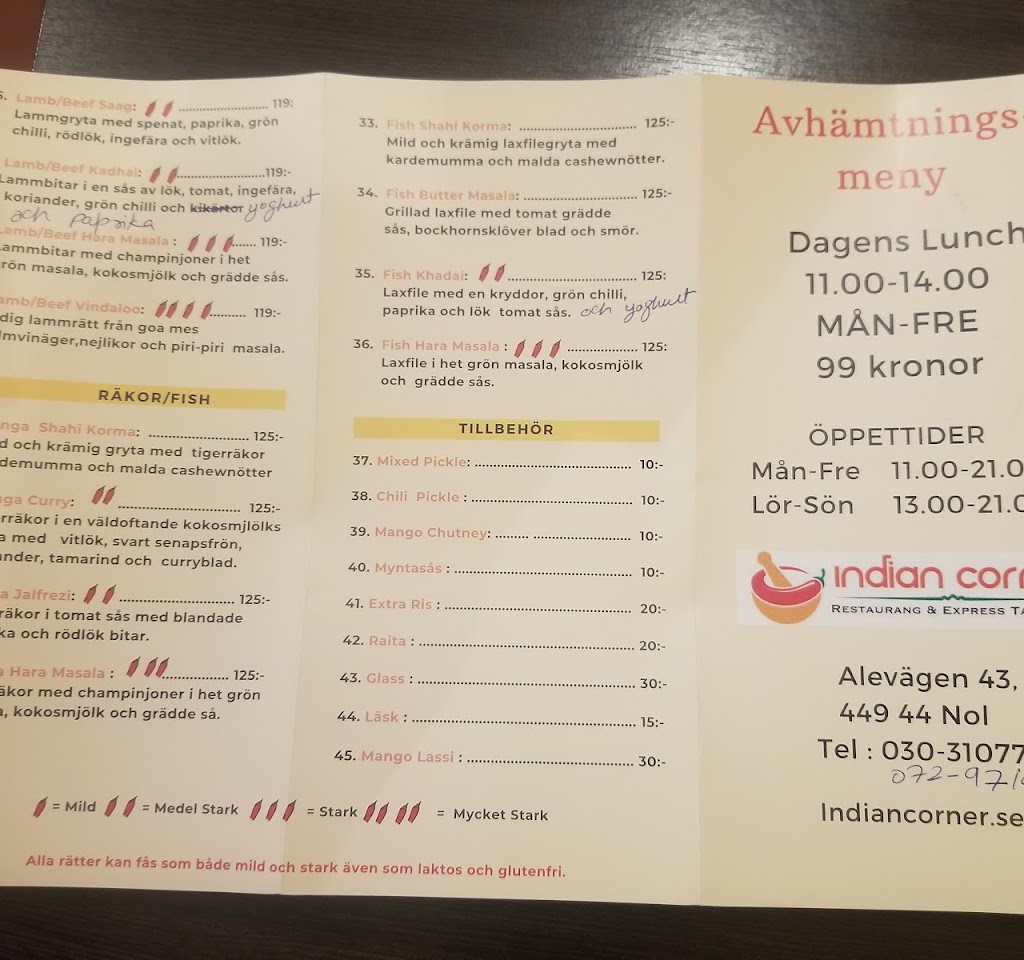 Lamb/Beef Saag: ........................ 119:
Lammgryta med spenat, paprika, grön
chilli, rödlök, ingefära och vitlök.
Lamb/Beef Kadhai: ........................119:-
Lammbitar i en sås av lök, tomat, ingefära,
koriander, grön chilli och kikärtor yoghurt
och paprika
Lamb/Beef Hara Masala : ...... 119:-
Lammbitar med champinjoner i het
grön masala, kokosmjölk och grädde sås.
Lamb/Beef Vindaloo: ......... 119:-
dig lammrätt från goa mes
lmvinäger,nejlikor och piri-piri masala.
RÄKOR/FISH
nga Shahi Korma: ........................... 125:-
d och krämig gryta med tigerräkor
demumma och malda cashewnötter
ga Curry: ................................. 125:-
rräkor i en väldoftande kokosmjlölks
a med vitlök, svart senapsfrön,
ander, tamarind och curryblad.
a Jalfrezi: ............................... 125:-
räkor i tomat sås med blandade
ka och rödlök bitar.
a Hara Masala : .................. 125:-
äkor med champinjoner i het grön
a, kokosmjölk och grädde så.
33. Fish Shahi Korma: ................................ 125:-
Mild och krämig laxfilegryta med
kardemumma och malda cashewnötter.
34. Fish Butter Masala: ................................ 125:-
Grillad laxfile med tomat grädde
sås, bockhornsklöver blad och smör.
35. Fish Khadai: ................................... 125:
Laxfile med en kryddor, grön chilli,
paprika och lök tomat sås. och yoghurt
36. Fish Hara Masala : ................... 125:
Laxfile i het grön masala, kokosmjölk
och grädde sås.
TILLBEHÖR
37. Mixed Pickle: .......................................... 10:-
38. Chili Pickle : ............................................ 10:-
39. Mango Chutney: ......... ........................... 10:-
40. Myntasås : ................................................ 10:-
41. Extra Ris : .................................................. 20:-
42. Raita : .......................................................... 20:-
43. Glass : ........................................................... 30:-
44. Läsk : ............................................................ 15:-
45. Mango Lassi : ............................................. 30:-
= Mild = Medel Stark = Stark = Mycket Stark
Alla rätter kan fås som både mild och stark även som laktos och glutenfri.
Avhämtnings-
meny
Dagens Lunch
11.00-14.00
MÅN-FRE
99 kronor
ÖPPETTIDER
Mån-Fre 11.00-21.0
Lör-Sön 13.00-21.0
indian corn
RESTAURANG & EXPRESS TA
Alevägen 43,
449 44 Nol
Tel : 030-31077
072-971
Indiancorner.se